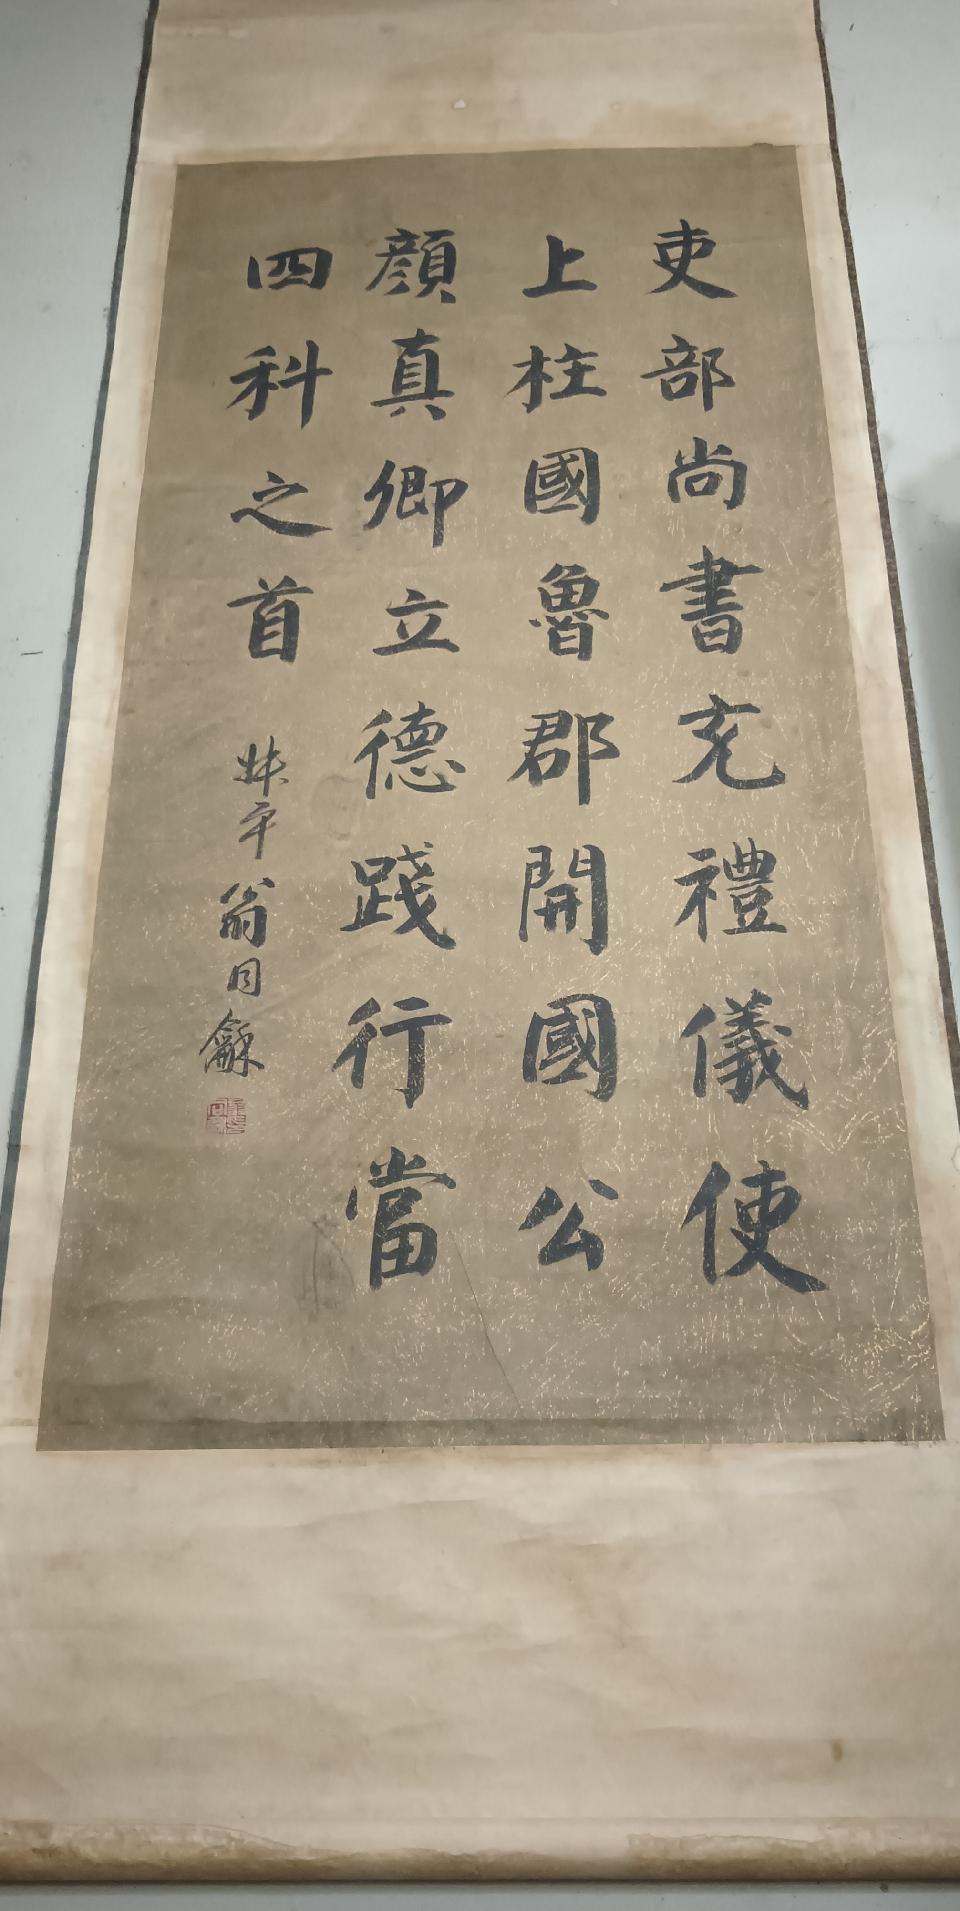 吏部尚書充禮儀使
上柱國魯郡開國公
顔真卿立德踐行當
四科之首
叔平翁同龢